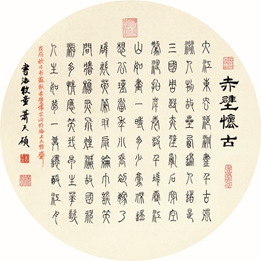 赤壁懷古
大江東去浪淘盡千古風
流人物故壘西邊人道是
三國周郎赤壁亂石穿空
驚濤拍岸卷起千堆雪江
山如畫一時多少豪傑遙
想公瑾當年小喬初嫁了
雄姿英發羽扇綸巾談笑
間檣櫓灰飛煙滅故國神
遊多情應笑我早生華髮
人生如夢一尊還酹江月
書海